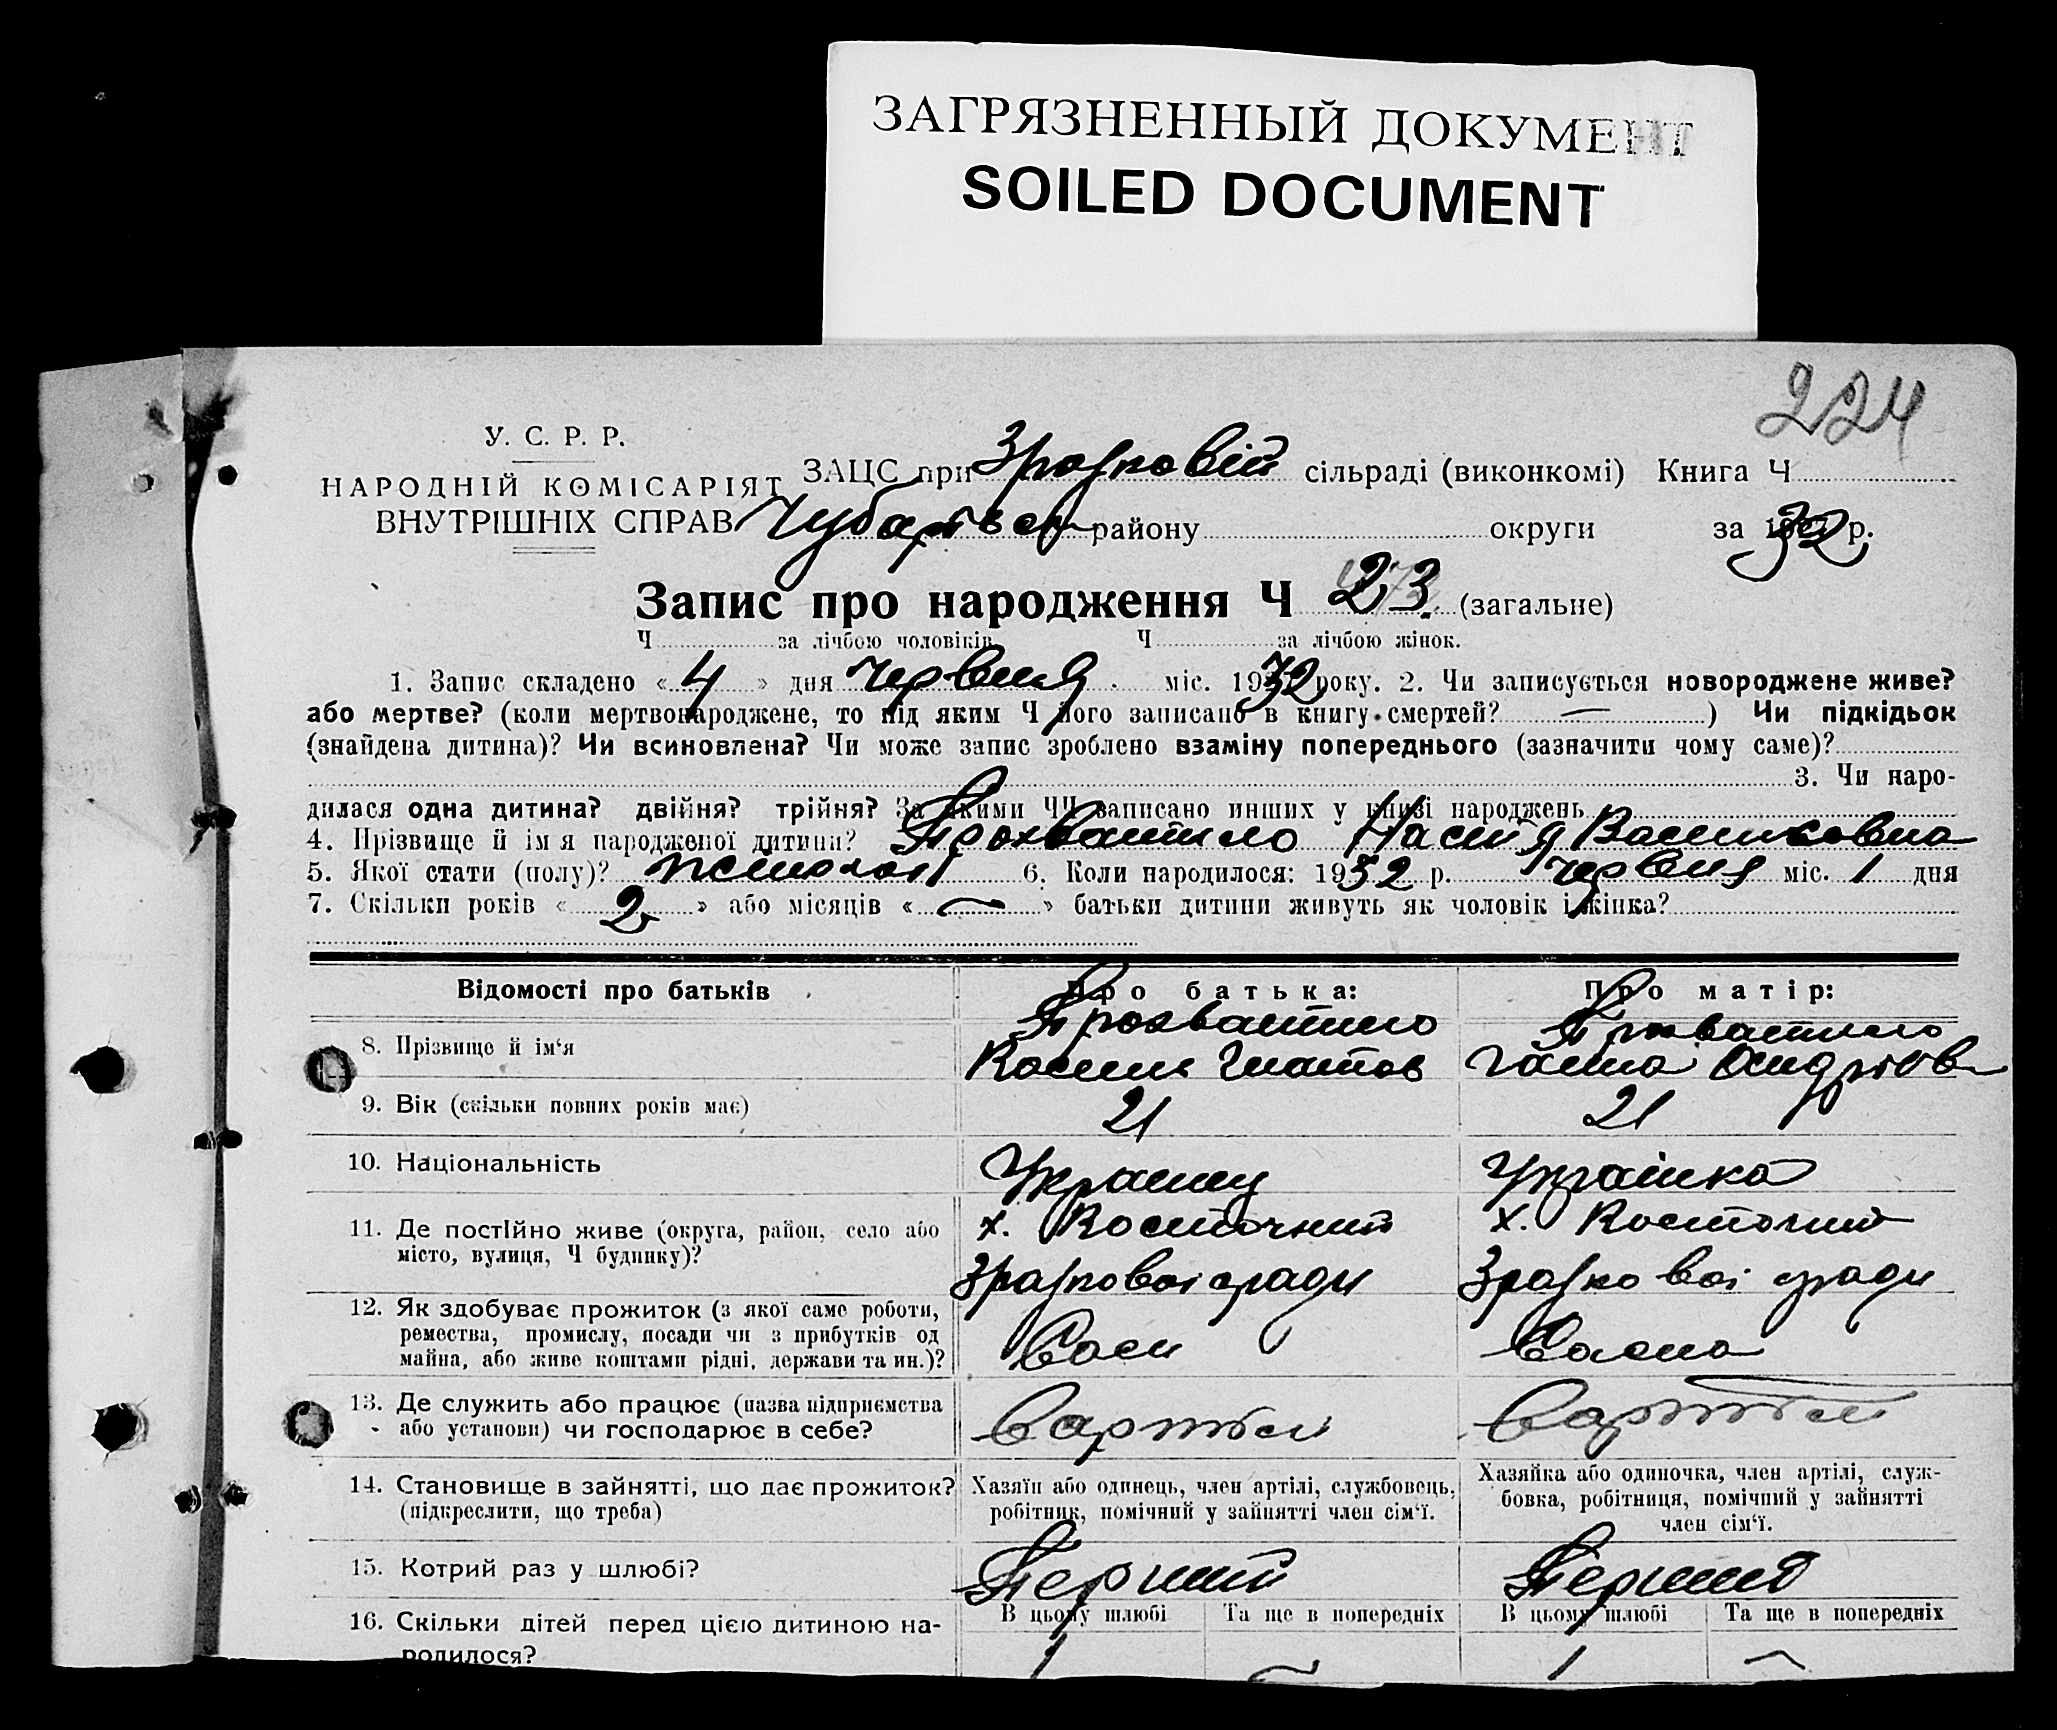 ЗАГРЯЗНЕННЫЙ ДОКУМЕНТ
SOILED DOCUMENT
224
У. С. Р. Р.
НАРОДНІЙ КОМІСАРІЯТ
ВНУТРІШНІХ СПРАВ
ЗАЦС при Зразковій сільраді (виконкомі) Книга Ч
Чубарівськ району округи за 1932 р.
Запис про народження Ч 23 (загальне)
Ч за лічбою чоловіків Ч за лічбою жінок.
1. Запис складено « 4 » дня червня міс. 1932 року. 2. Чи записується новороджене живе?
або мертве? (коли мертвонароджене, то під яким Ч його записано в книгу смертей? — ) Чи підкідьок
(знайдена дитина)? Чи всиновлена? Чи може запис зроблено взаміну попереднього (зазначити чому саме)?
3. Чи наро-
дилася одна дитина? двійня? трійня? За якими ЧЧ записано инших у книзі народжень
4. Прізвище й ім я народженої дитини? Прохватило Настя Васильовна
5. Якої стати (полу)? жіночої 6. Коли народилося: 1932 р. червня міс. 1 дня
7. Скільки років « 2 » або місяців « — » батьки дитини живуть як чоловік і жінка?
Відомості про батьків
Про батька:
Про матір:
8. Прізвище й ім‘я
Прохватило
Прохватило
Гнатов
Ганна Андріов
9. Вік (скільки повних років має)
21
21
10. Національність
Українец
Українка
11. Де постійно живе (округа, район, село або
місто, вулиця, Ч будинку)?
х. Восточний
х. Восточний
Зразковоі сради
Зразковоі сради
12. Як здобуває прожиток (з якої саме роботи,
ремества, промислу, посади чи з прибутків од
майна, або живе коштами рідні, держави та ин.)?
13. Де служить або працює (назва підприємства
або установи) чи господарює в себе?
В артілі
В артілі
14. Становище в зайнятті, що дає прожиток?
(підкреслити, що треба)
Хазяїн або одинець, член артілі, службовець,
робітник, помічний у зайнятті член сім‘ї.
Хазяйка або одиночка, член артілі, служ-
бовка, робітниця, помічний у зайнятті
член сім‘ї.
15. Котрий раз у шлюбі?
Перший
Перший
16. Скільки дітей перед цією дитиною на-
родилося?
В цьому шлюбі
Та ще в попередніх
В цьому шлюбі
Та ще в попередніх
1
—
1
—